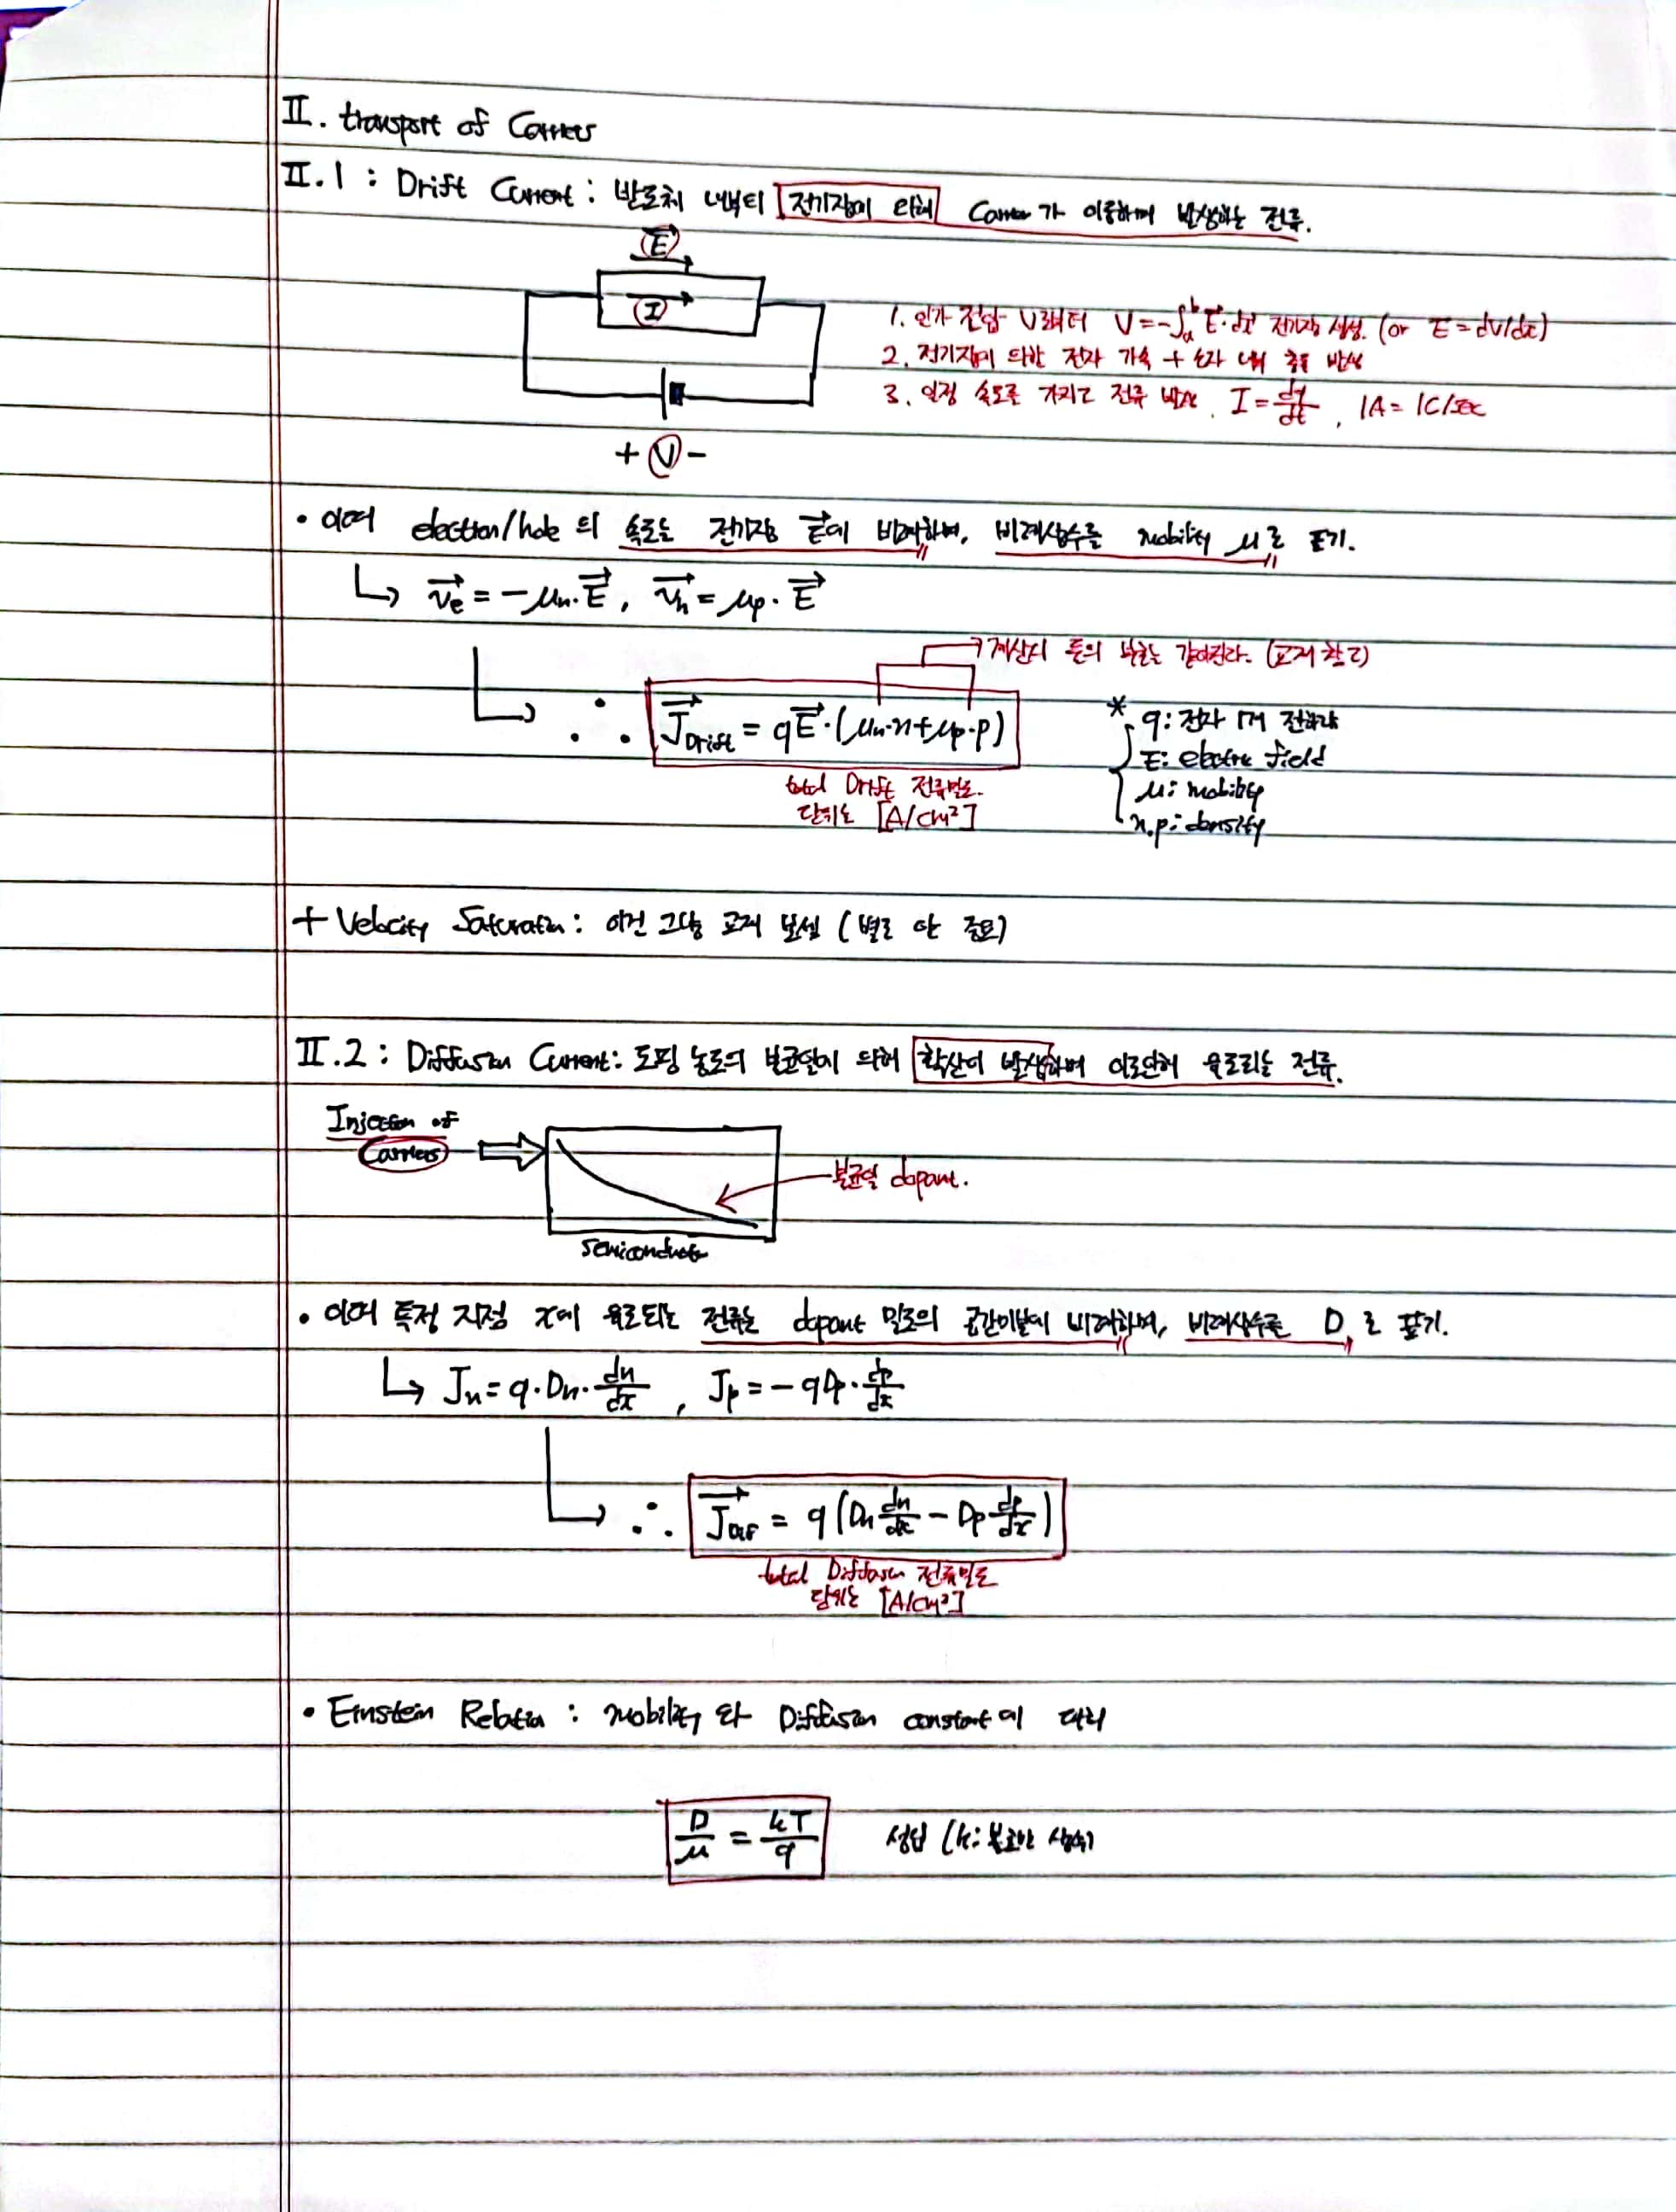 II. transport of Carriers
II.1 : Drift Current : 반도체 내부의 전기장에 의해 Carrier가 이동하며 발생하는 전류.
E
I
+ V -
1. 인가 전압 V로부터 V = -∫ₐᵇ E·dx 전기장 생성. (or E = dV/dx)
2. 전기장에 의한 전자 가속 + 원자 내부 충돌 발생
3. 일정 속도를 가지고 전류 발생. I = dq/dt, 1A = 1C/sec
• 이때 electron/hole 의 속도는 전기장 E에 비례하며, 비례상수를 mobility μ로 표기.
↳ vₑ = -μn·E, vₕ = μp·E
계산시 둘의 부호는 같아진다. (교재 참고)
∴ J Drift = qE·(μn·n+μp·p)
total Drift 전류밀도.
단위는 [A/cm²]
* q: 전자 1개 전하량
E: electric field
μ: mobility
n.p: density
+ Velocity Saturation : 이건 그냥 교재 보셈 (별로 안 중요)
II.2 : Diffusion Current: 도핑 농도의 불균일에 의해 확산이 발생하며 이로인해 흐르는 전류.
Injection of
Carriers
불균일 dopant.
Semiconductor
• 이때 특정 지점 x에 유도되는 전류는 dopant 밀도의 공간미분에 비례하며, 비례상수를 D 로 표기.
↳ Jn = q·Dn·dn/dx, Jp = -qDp·dp/dx
∴ J Diff = q(Dn dn/dx - Dp dp/dx)
total Diffusion 전류밀도
단위는 [A/cm²]
• Einstein Relation : mobility 와 Diffusion constant에 대해
D/μ = kT/q 성립 (k: 볼츠만 상수)